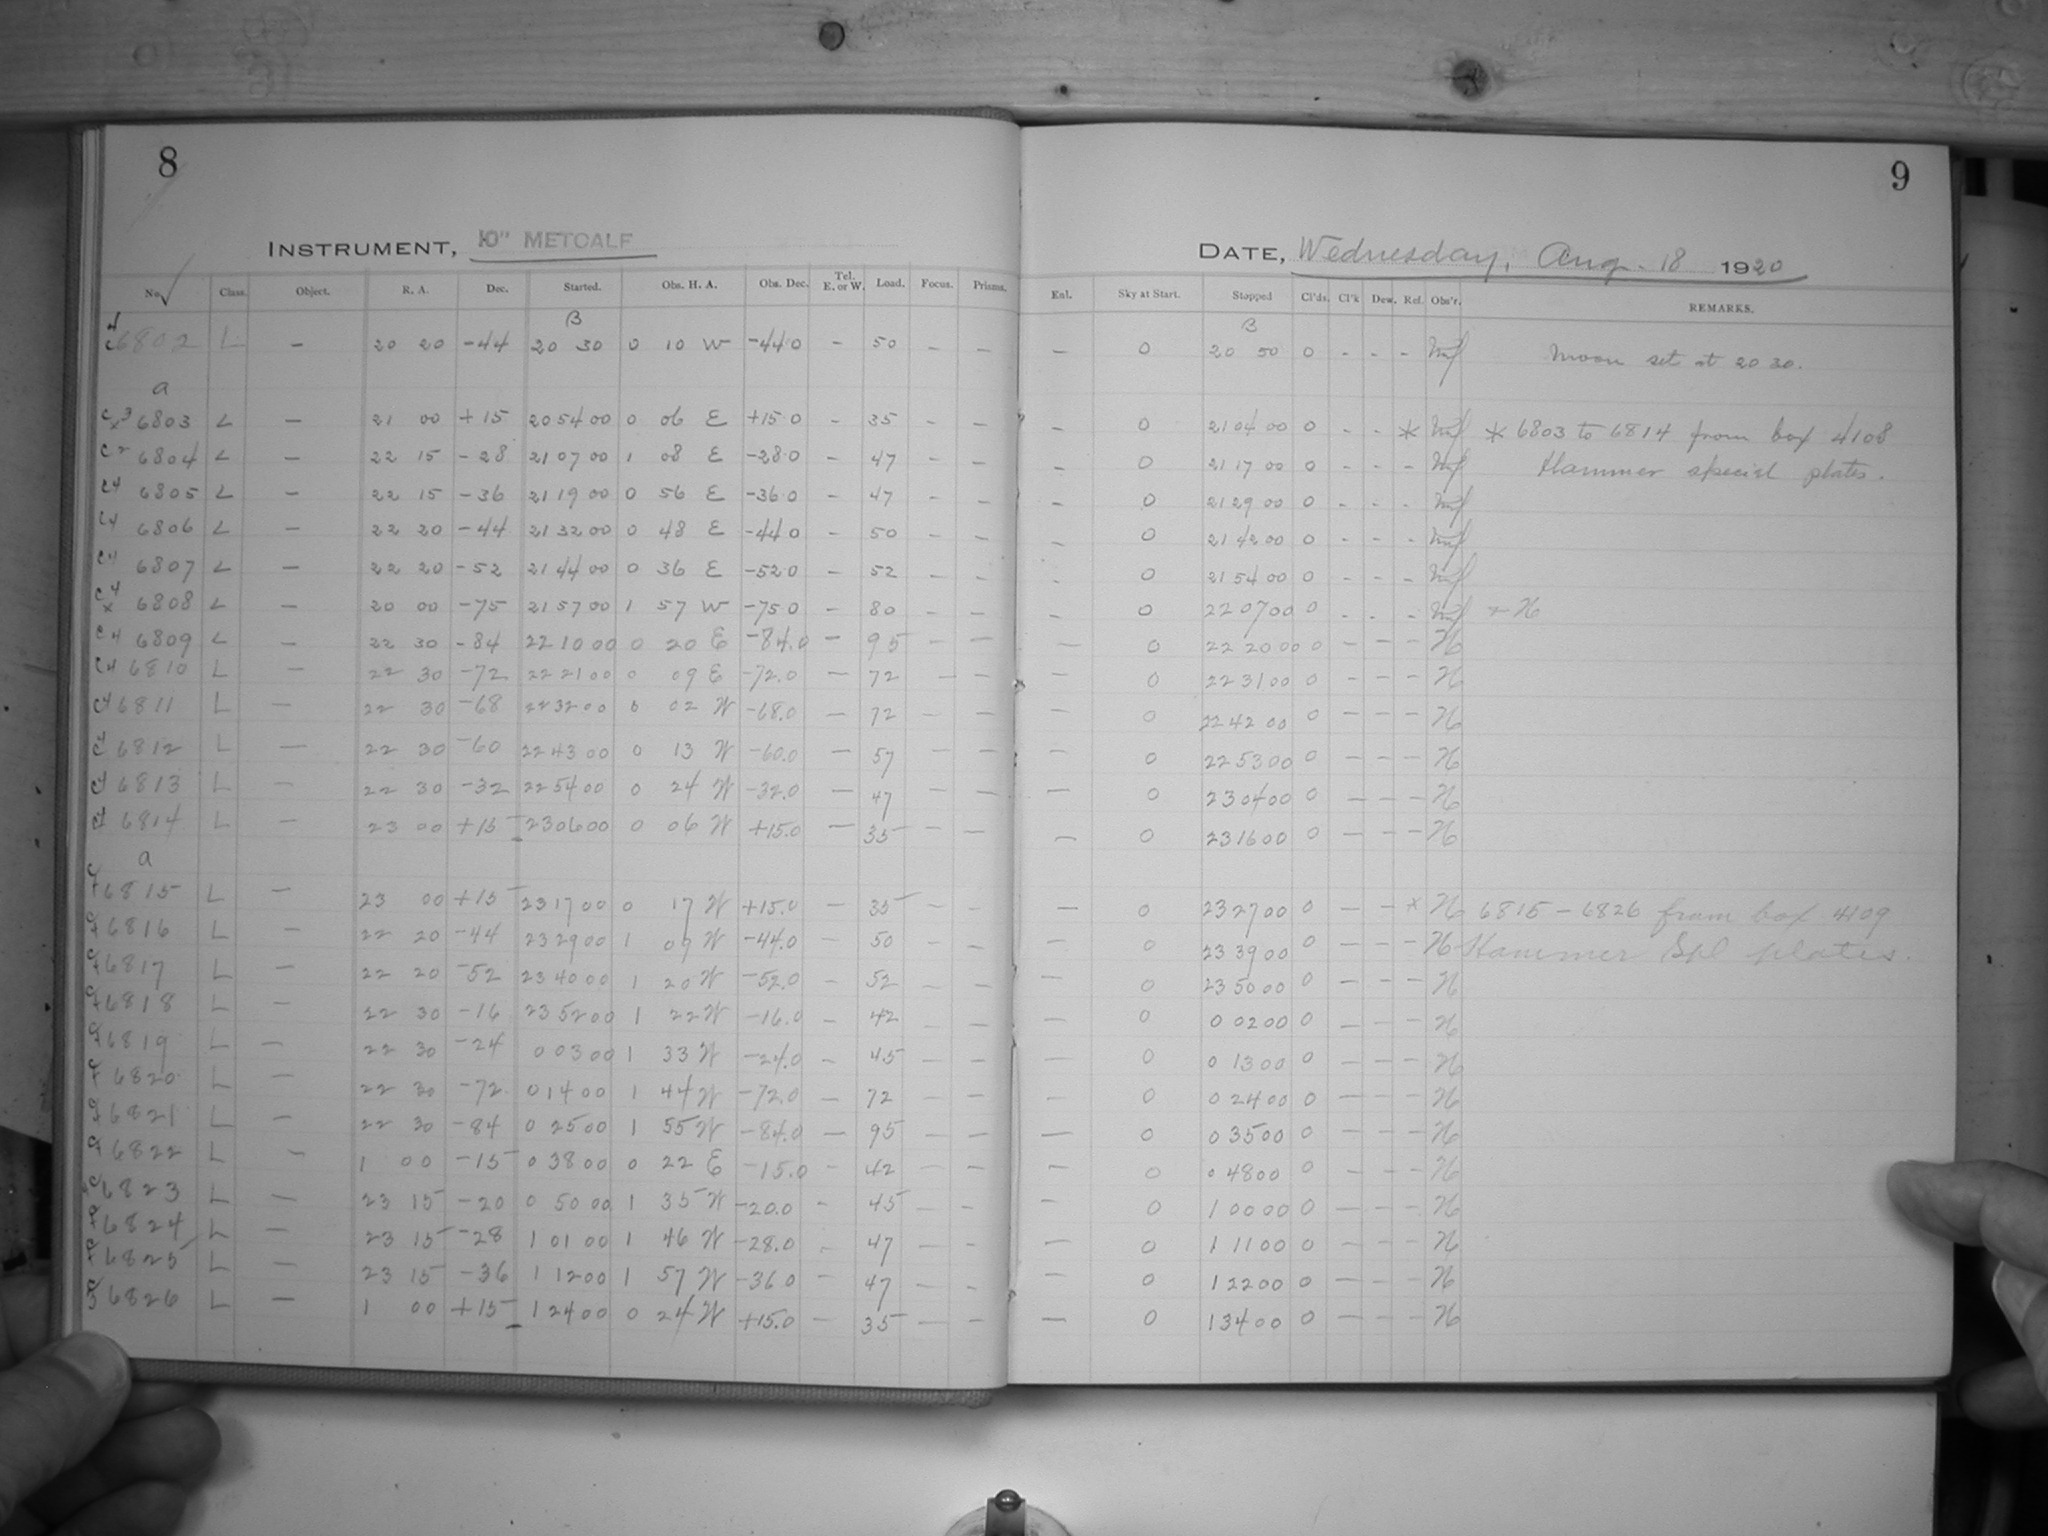 8
INSTRUMENT, 10" METCALF
No. Class. Object. R. A. Dec. Started. Obs. H. A. Obs. Dec. Tel. E. or W. Load. Focus. Prisms.
B
6802 L — 20 20 -44 20 30 0 10 W -44.0 - 50 - -
a
6803 L — 21 00 +15 20 54 00 0 06 E +15.0 - 35 - -
6804 L — 22 15 -28 21 07 00 1 08 E -28.0 - 47 - -
6805 L — 22 15 -36 21 19 00 0 56 E -36.0 - 47 - -
6806 L — 22 20 -44 21 32 00 0 48 E -44.0 - 50 - -
6807 L — 22 20 -52 21 44 00 0 36 E -52.0 - 52 - -
6808 L — 20 00 -75 21 57 00 1 57 W -75.0 - 80 - -
6809 L — 22 30 -84 22 10 00 0 20 E -84.0 - 95 - -
6810 L — 22 30 -72 22 21 00 0 09 E -72.0 - 72 - -
6811 L — 22 30 -68 22 32 00 0 02 W -68.0 - 72 - -
6812 L — 22 30 -60 22 43 00 0 13 W -60.0 - 57 - -
6813 L — 22 30 -32 22 54 00 0 24 W -32.0 - 47 - -
6814 L — 23 00 +15 23 06 00 0 06 W +15.0 - 35 - -
a
6815 L — 23 00 +15 23 17 00 0 17 W +15.0 - 35 - -
6816 L — 22 20 -44 23 29 00 1 09 W -44.0 - 50 - -
6817 L — 22 20 -52 23 40 00 1 20 W -52.0 - 52 - -
6818 L — 22 30 -16 23 52 00 1 22 W -16.0 - 42 - -
6819 L — 22 30 -24 0 03 00 1 33 W -24.0 - 45 - -
6820 L — 22 30 -72 0 14 00 1 44 W -72.0 - 72 - -
6821 L — 22 30 -84 0 25 00 1 55 W -84.0 - 95 - -
6822 L — 1 00 -15 0 38 00 0 22 E -15.0 - 42 - -
6823 L — 23 15 -20 0 50 00 1 35 W -20.0 - 45 - -
6824 L — 23 15 -28 1 01 00 1 46 W -28.0 - 47 - -
6825 L — 23 15 -36 1 12 00 1 57 W -36.0 - 47 - -
6826 L — 1 00 +15 1 24 00 0 24 W +15.0 - 35 - -
9
DATE, Wednesday, Aug. 18 1920
Enl. Sky at Start. Stopped Cl'ds. Cl'k Dew. Ref. Obs'r. REMARKS.
B
- 0 20 50 0 - - - Moon set at 20 30.
- 0 21 04 00 0 - - * * 6803 to 6814 from box 4108
- 0 21 17 00 0 - - - Hammer special plates.
- 0 21 29 00 0 - - -
- 0 21 42 00 0 - - -
- 0 21 54 00 0 - - -
- 0 22 07 00 0 - - -
- 0 22 20 00 0 - - - H
- 0 22 31 00 0 - - - H
- 0 22 42 00 0 - - - H
- 0 22 53 00 0 - - - H
- 0 23 04 00 0 - - - H
- 0 23 16 00 0 - - - H
- 0 23 27 00 0 - - * H 6815 - 6826 from box 4109
- 0 23 39 00 0 - - - H Hammer Spl plates.
- 0 23 50 00 0 - - - H
- 0 0 02 00 0 - - - H
- 0 0 13 00 0 - - - H
- 0 0 24 00 0 - - - H
- 0 0 35 00 0 - - - H
- 0 0 48 00 0 - - - H
- 0 1 00 00 0 - - - H
- 0 1 11 00 0 - - - H
- 0 1 22 00 0 - - - H
- 0 1 34 00 0 - - - H